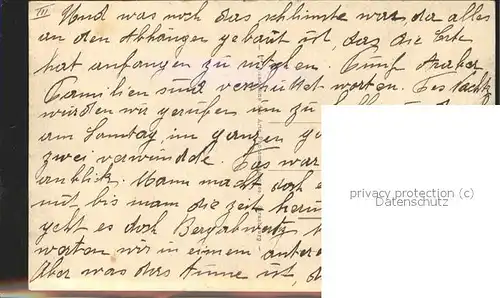 III
Und was noch das schlimste war da alles
an den Abhängen gebaut ist, das die Erde
hat anfangen zu rutschen. Fünf Araber
Familien sind verschüttet worten. Des Nachts
würden wir gerufen um zu
am Sonntag im ganzen
zwei verwundde. Das war
anblick. Mann macht doch
mit, bis man die zeit
geht es doch Bergabwertz
worten wir in einem
Aber was das tumme ist, d
privacy protection (c)
Datenschutz